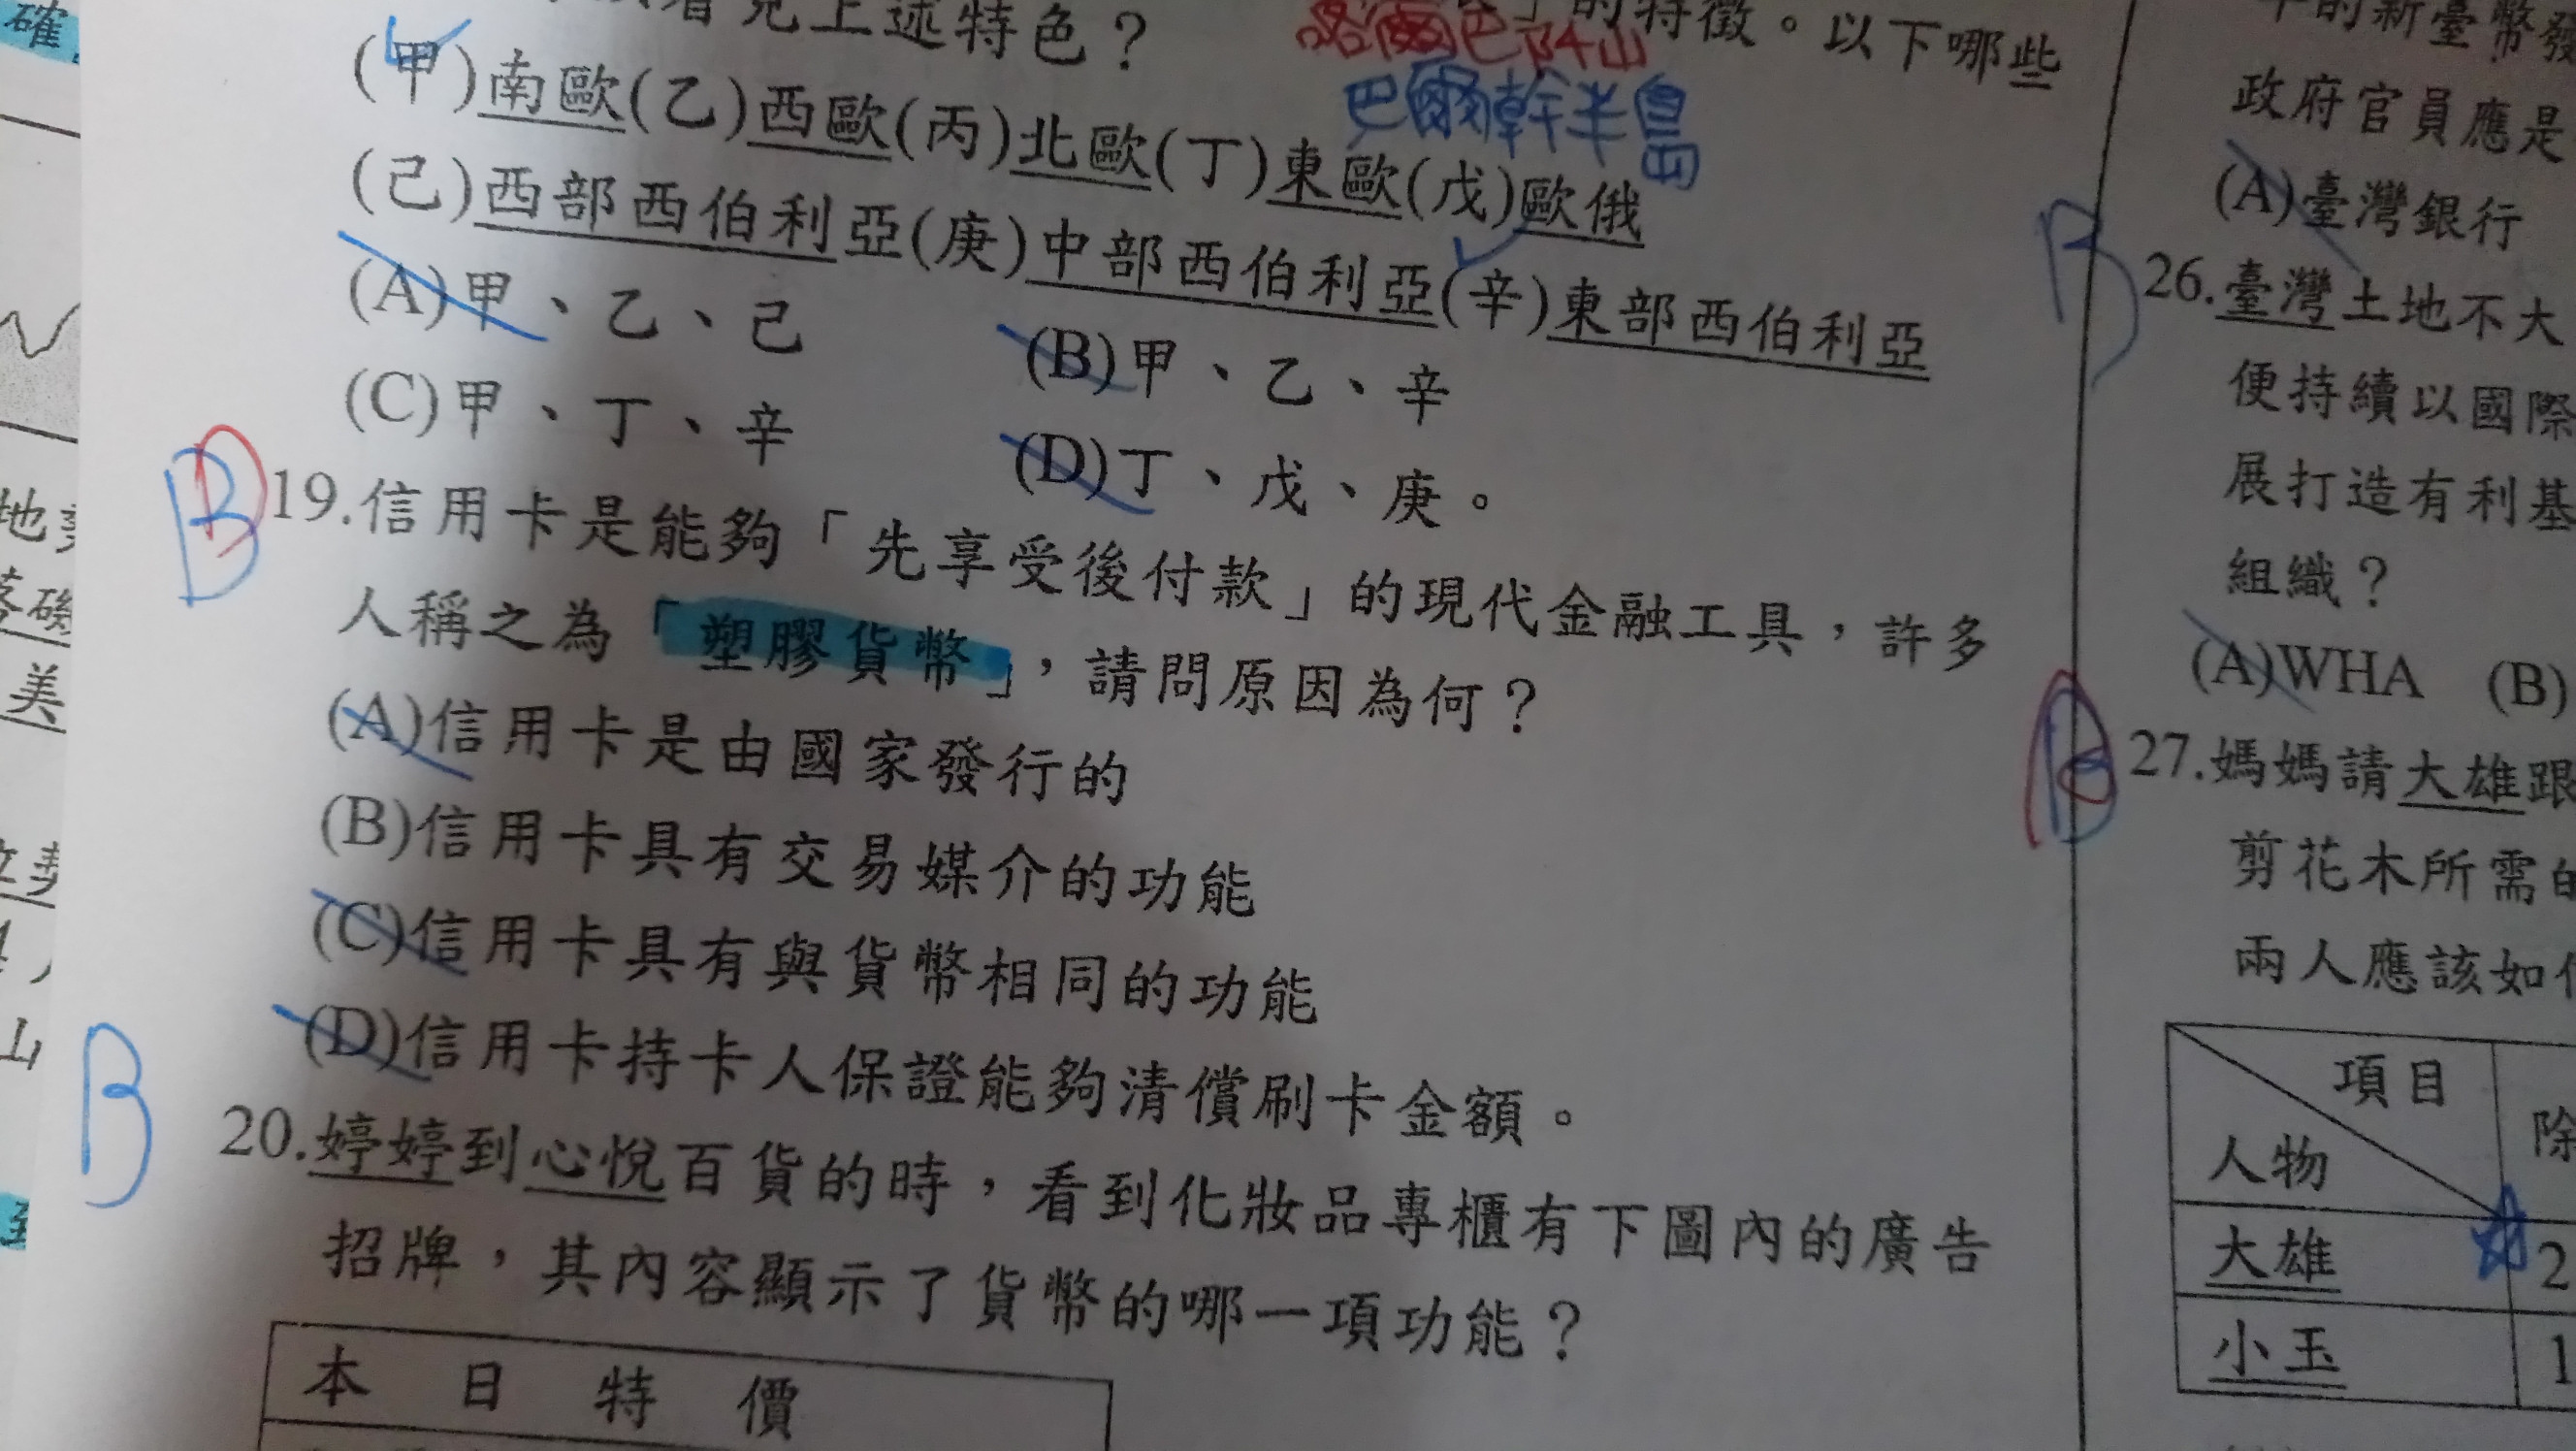 確
看見上述特色?
(甲)南歐(乙)西歐(丙)北歐(丁)東歐(戊)歐俄
(己)西部西伯利亞(庚)中部西伯利亞(辛)東部西伯利亞
(A)甲、乙、己
(B)甲、乙、辛
(C)甲、丁、辛
(D)丁、戊、庚。
的特徵。以下哪些
巴爾幹半島
B
19.信用卡是能夠「先享受後付款」的現代金融工具,許多
人稱之為「塑膠貨幣」,請問原因為何?
(A)信用卡是由國家發行的
(B)信用卡具有交易媒介的功能
(C)信用卡具有與貨幣相同的功能
(D)信用卡持卡人保證能夠清償刷卡金額。
B
20.婷婷到心悅百貨的時,看到化妝品專櫃有下圖內的廣告
招牌,其內容顯示了貨幣的哪一項功能?
本日特價
的新臺幣發
政府官員應是
(A)臺灣銀行
B
26.臺灣土地不大
便持續以國際
展打造有利基
組織?
(A)WHA (B)
B
27.媽媽請大雄跟
剪花木所需的
兩人應該如何
項目
人物
除
大雄 2
小玉 1
地
美
山